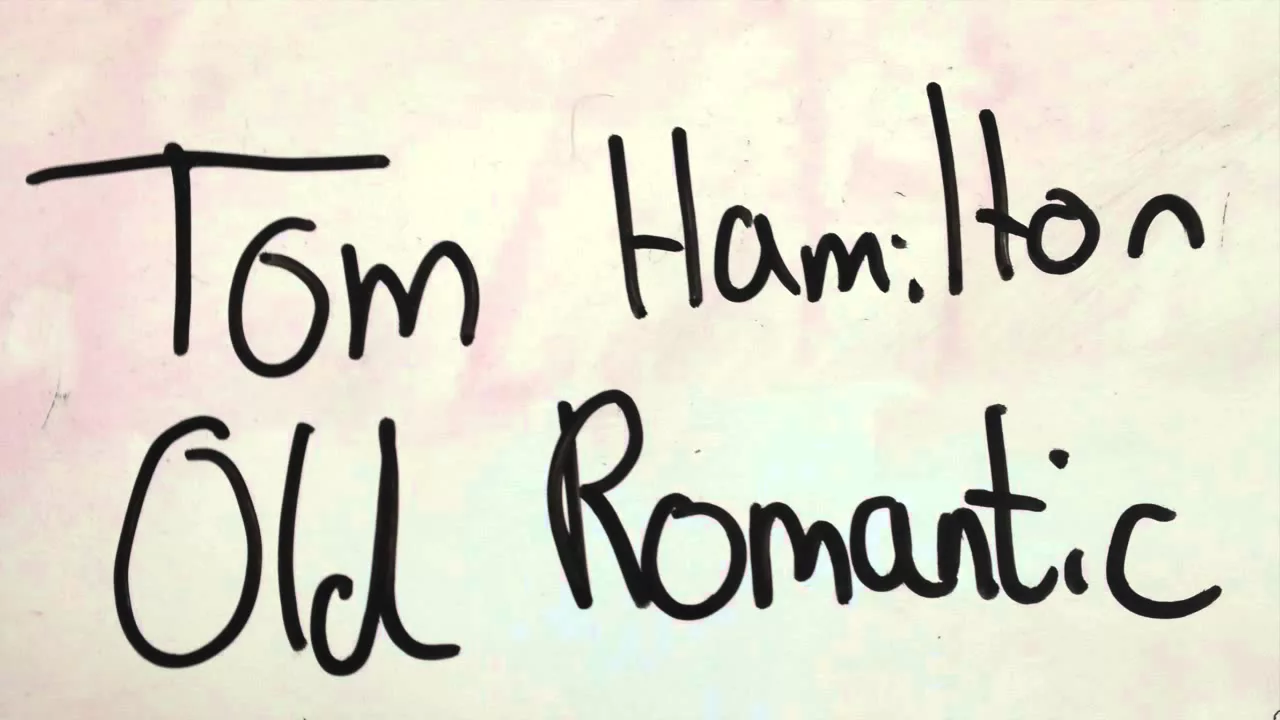 Tom Hamilton
Old Romantic